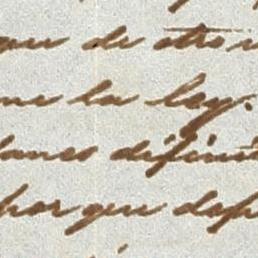 que de otro
me la ley.
lances difini
porque dap